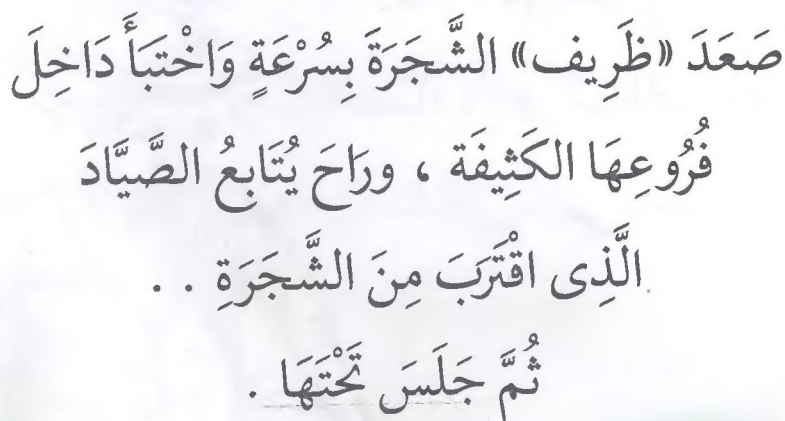 صَعَدَ «ظَرِيف» الشَّجَرَةَ بِسُرْعَةٍ وَاخْتَبَأَ دَاخِلَ
فُرُوعِهَا الكَثِيفَة ، ورَاحَ يُتَابعُ الصَّيَّادَ
الَّذِى اقْتَرَبَ مِنَ الشَّجَرَةِ . .
ثُمَّ جَلَسَ تَحْتَهَا .